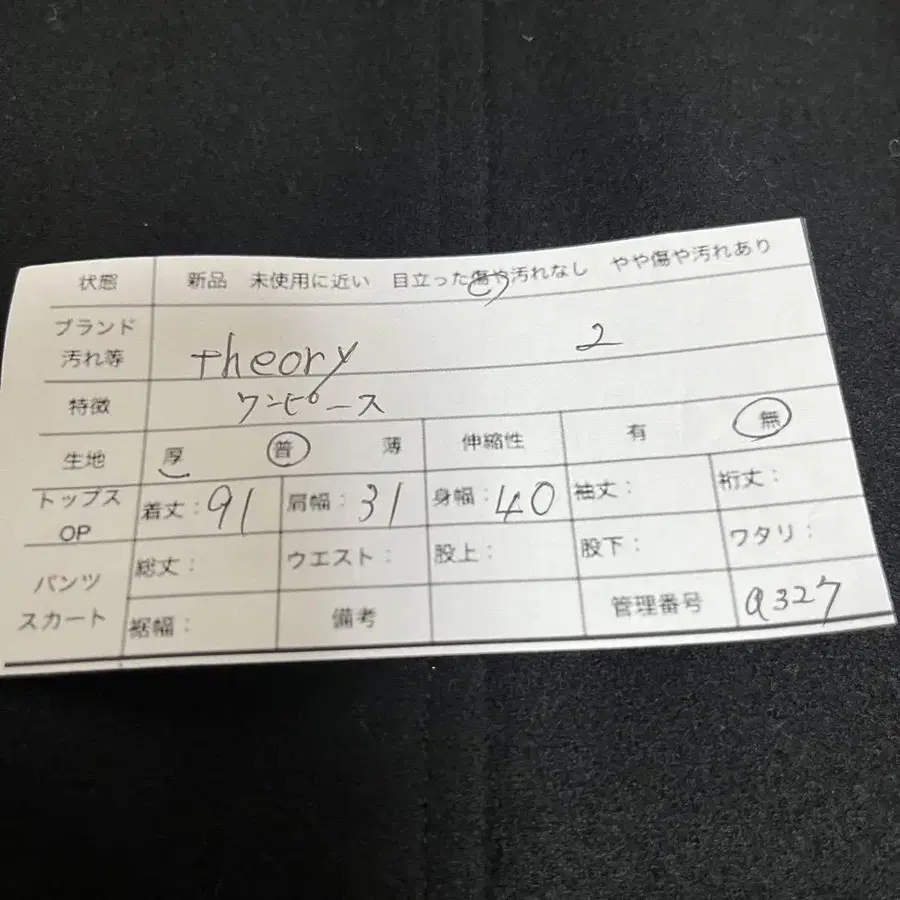 状態 新品 未使用に近い 目立った傷や汚れなし やや傷や汚れあり
ブランド
汚れ等 theory 2
特徴 ワンピース
生地 厚 普 薄 伸縮性 有 無
トップス
OP 着丈：91 肩幅：31 身幅：40 袖丈： 裄丈：
パンツ
スカート 総丈： ウエスト： 股上： 股下： ワタリ：
裾幅： 備考 管理番号 a327